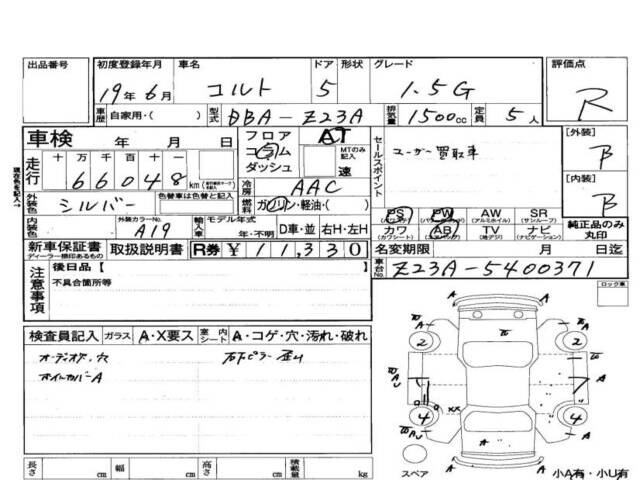 出品番号 初度登録年月 車名 ドア 形状 グレード 評価点
19年6月 コルト 5 1.5G R
車歴 自家用・( ) 型式 DBA-Z23A 排気量 1500cc 定員 5人
車検 年 月 日 フロア コラム ダッシュ AT MTのみ記入 速 セールスポイント ユーザー買取車 [外装] B
走行 十 万 千 百 十 一
66048 km
現在色を記入→ 冷房 AAC [内装] B
外装色 シルバー 色替車は色替と記入 燃料 ガソリン・軽油・( )
PS PW AW SR
(パワステ) (パワーウィンドウ) (アルミホイル) (サンルーフ)
カワ AB TV ナビ
(カワシート) (エアバッグ) (地デジ) (ナビゲーション)
純正品のみ丸印
内装色 外装カラーNo. A19 輸入車 モデル年式 年・不明 D車・並 右H・左H
新車保証書 取扱説明書 R券 ¥11,330 名変期限 月 日迄
ディーラー捺印あるもの
車台No. Z23A-5400371
注意事項 後日品【
不具合箇所等
ロック車
検査員記入 ガラス A・X要ス 室内 シート A・コゲ・穴・汚れ・破れ
オーディオ下、穴 右下ピラー歪み
ホイルカバーA
A A
2 2
A A
A U
4 4
XX
A A U A
A A
スペア 小A有・小U有
長さ cm 幅 cm 高さ cm 積載量 kg